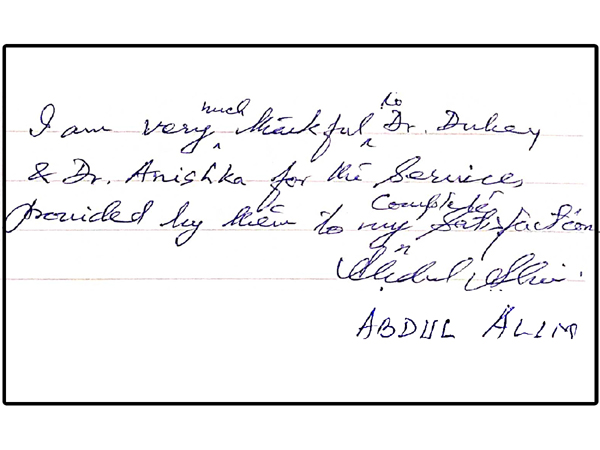 I am very much thankful to Dr. Dubey
& Dr. Anishka for the Services
provided by them to my Complete Satisfaction
Abdul Alim
ABDUL ALIM